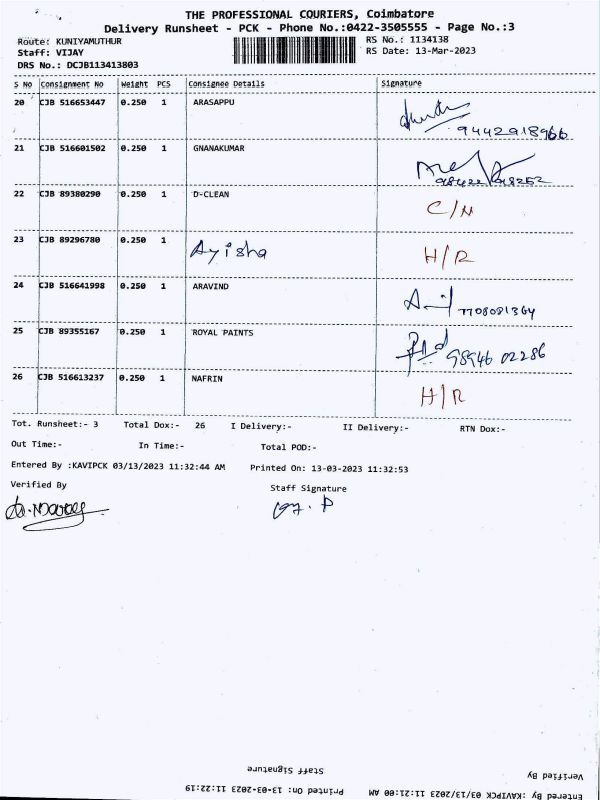 THE PROFESSIONAL COURIERS, Coimbatore
Delivery Runsheet - PCK - Phone No.:0422-3505555 - Page No.:3
Route: KUNIYAMUTHUR RS No.: 1134138
Staff: VIJAY RS Date: 13-Mar-2023
DRS No.: DCJB113413803
S No Consignment No Weight PCS Consignee Details Signature
20 CJB 516653447 0.250 1 ARASAPPU
9442918966
21 CJB 516601502 0.250 1 GNANAKUMAR
22 CJB 89380290 0.250 1 D-CLEAN C/N
23 CJB 89296780 0.250 1 Ayisha H/R
24 CJB 516641998 0.250 1 ARAVIND
7708081364
25 CJB 89355167 0.250 1 ROYAL PAINTS
98946 02286
26 CJB 516613237 0.250 1 NAFRIN H/R
Tot. Runsheet:- 3 Total Dox:- 26 I Delivery:- II Delivery:- RTN Dox:-
Out Time:- In Time:- Total POD:-
Entered By :KAVIPCK 03/13/2023 11:32:44 AM Printed On: 13-03-2023 11:32:53
Verified By Staff Signature
Verified By Staff Signature
Entered By :KAVIPCK 03/13/2023 11:21:00 AM Printed On: 13-03-2023 11:22:19